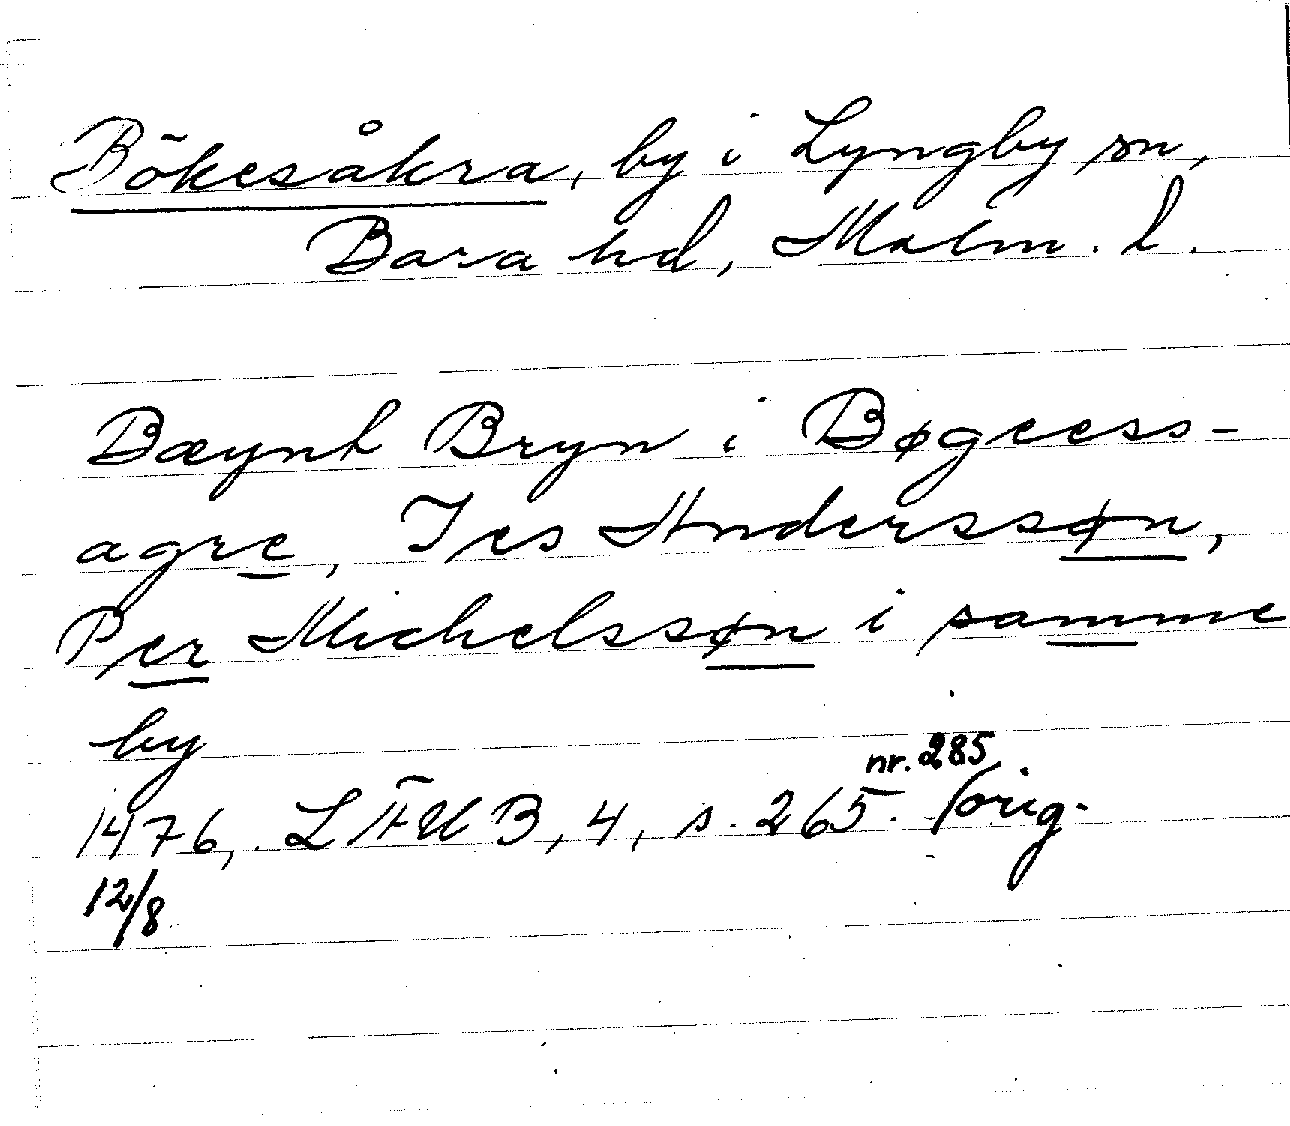 Bökesåkra, by i Lyngby sn,
Bara hd, Malm. l.
Bæynt Bryn i Bøgeess-
agre, Jes Anderssøn,
Per Michelssøn i samme
by
nr. 285
1476, LÄUB, 4, s. 265. orig.
12/8